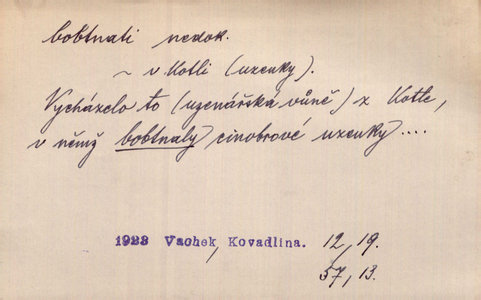 bobtnati nedok.
~ v kotli (uzenky).
Vycházelo to (uzenářská vůně) z kotle,
v němž bobtnaly cinobrové uzenky ....
1923 Vachek, Kovadlina. 12, 19.
57, 13.